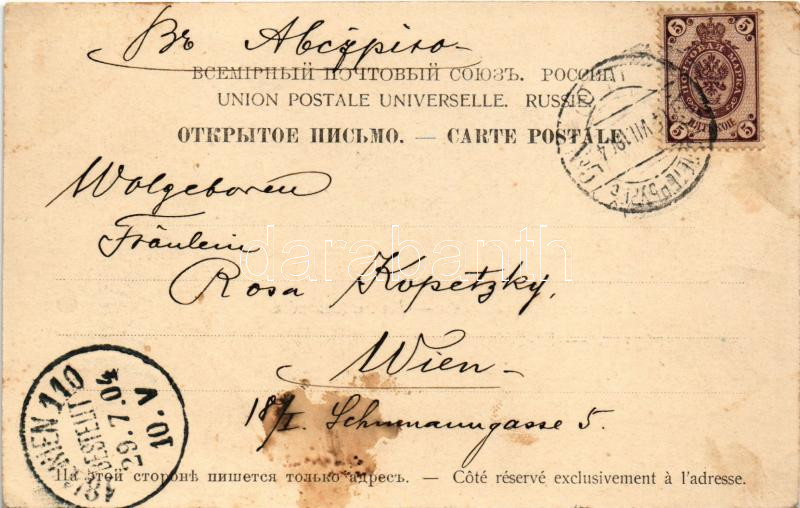 Въ Австрію
ВСЕМІРНЫЙ ПОЧТОВЫЙ СОЮЗЪ. РОССІЯ
UNION POSTALE UNIVERSELLE. RUSSIE
ОТКРЫТОЕ ПИСЬМО. — CARTE POSTALE
5 5
ПОЧТОВАЯ МАРКА
5 5
Wolgeboren
Fräulein
Rosa Kopetzky,
Wien
18/I. Schumanngasse 5.
darabanth
WIEN 110
BESTELLT
29.7.04
10.V
На этой сторонѣ пишется только адресъ. — Côté réservé exclusivement à l'adresse.